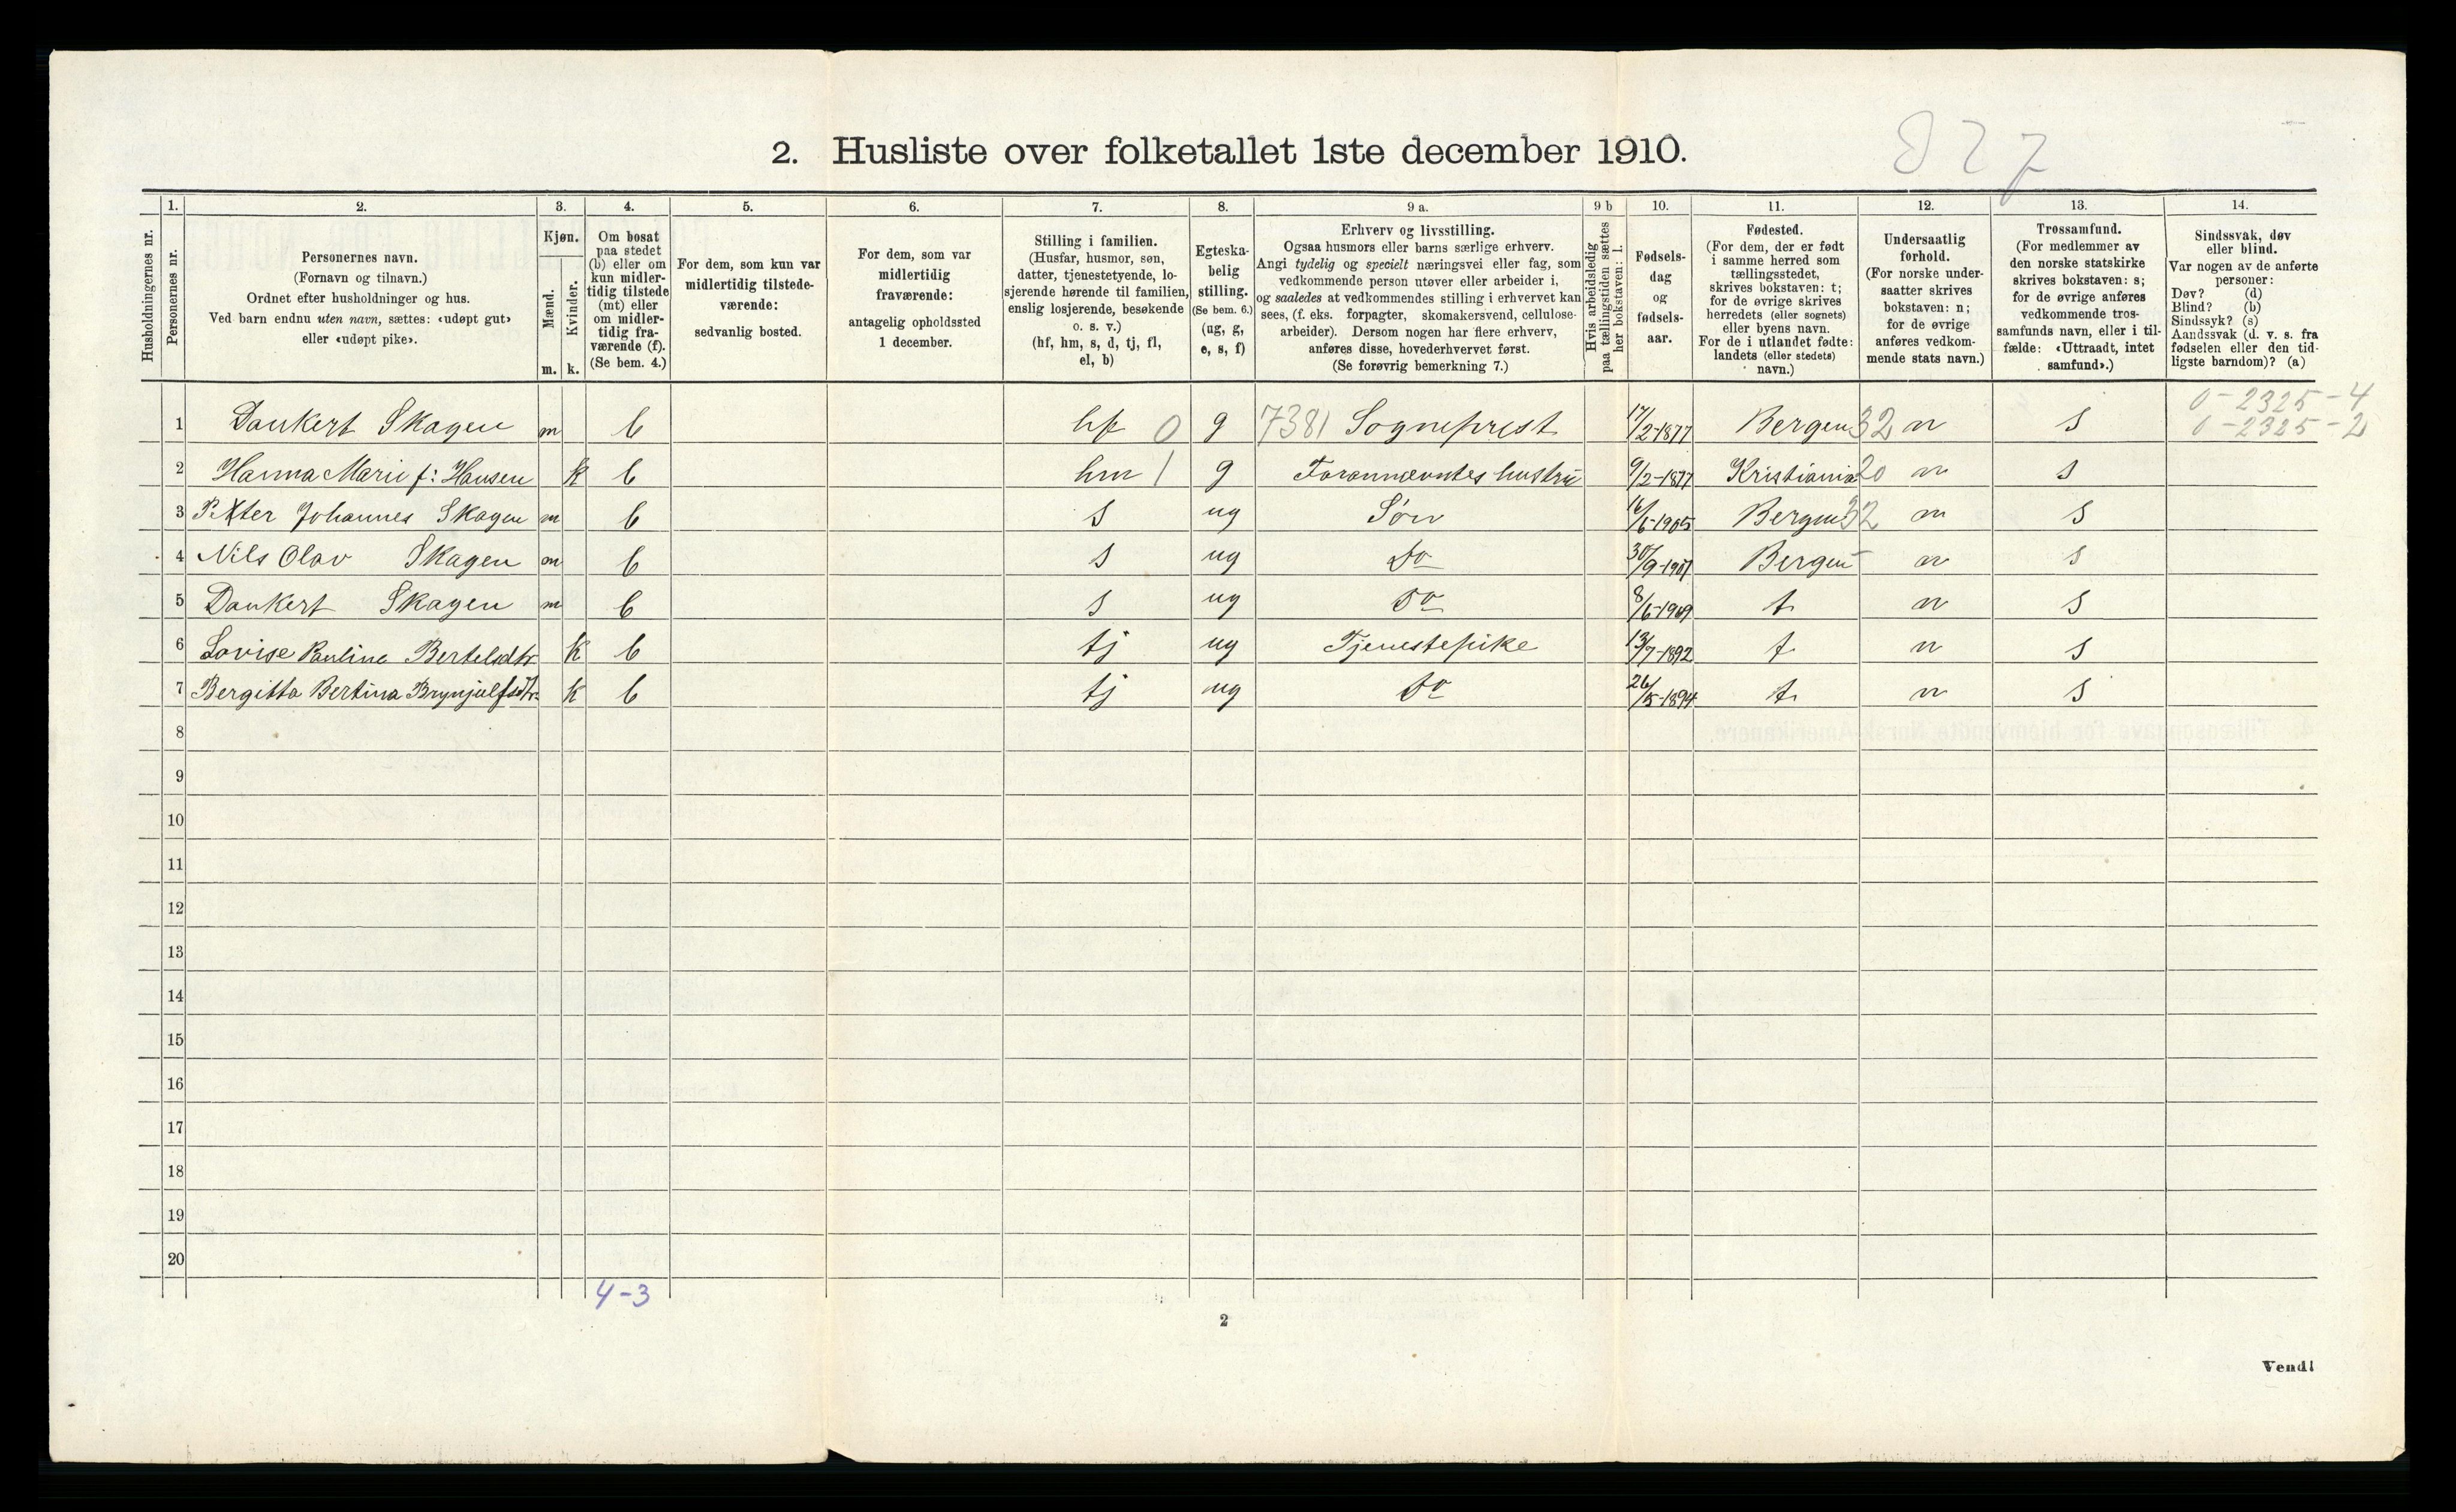 827
2. Husliste over folketallet 1ste december 1910.
Husholdningernes nr.
1. Personernes nr.
2. Personernes navn. (Fornavn og tilnavn.) Ordnet efter husholdninger og hus. Ved barn endnu uten navn, sættes: «udøpt gut» eller «udøpt pike».
3. Kjøn. Mænd. m. Kvinder. k.
4. Om bosat paa stedet (b) eller om kun midlertidig tilstede (mt) eller om midlertidig fraværende (f). (Se bem. 4.)
5. For dem, som kun var midlertidig tilstedeværende: sedvanlig bosted.
6. For dem, som var midlertidig fraværende: antagelig opholdssted 1 december.
7. Stilling i familien. (Husfar, husmor, søn, datter, tjenestetyende, losjerende hørende til familien, enslig losjerende, besøkende o. s. v.) (hf, hm, s, d, tj, fl, el, b)
8. Egteskabelig stilling. (Se bem. 6.) (ug, g, e, s, f)
9 a. Erhverv og livsstilling. Ogsaa husmors eller barns særlige erhverv. Angi tydelig og specielt næringsvei eller fag, som vedkommende person utøver eller arbeider i, og saaledes at vedkommendes stilling i erhvervet kan sees, (f. eks. forpagter, skomakersvend, cellulosearbeider). Dersom nogen har flere erhverv, anføres disse, hovederhvervet først. (Se forøvrig bemerkning 7.)
9 b Hvis arbeidsledig paa tællingstiden sættes her bokstaven: l.
10. Fødselsdag og fødselsaar.
11. Fødested. (For dem, der er født i samme herred som tællingsstedet, skrives bokstaven: t; for de øvrige skrives herredets (eller sognets) eller byens navn. For de i utlandet fødte: landets (eller stedets) navn.)
12. Undersaatlig forhold. (For norske undersaatter skrives bokstaven: n; for de øvrige anføres vedkommende stats navn.)
13. Trossamfund. (For medlemmer av den norske statskirke skrives bokstaven: s; for de øvrige anføres vedkommende trossamfunds navn, eller i tilfælde: «Uttraadt, intet samfund».)
14. Sindssvak, døv eller blind. Var nogen av de anførte personer: Døv? (d) Blind? (b) Sindssyk? (s) Aandssvak (d. v. s. fra fødselen eller den tidligste barndom)? (a)
0-2325-4
1 Dankert Skagen m b hf 0 g 7381 Sogneprest 17/2-1877 Bergen 32 n s 0-2325-2
2 Hanna Marie f: Hansen k b hm 1 g Forannævntes hustru 9/2-1877 Kristiania 20 n s
3 Petter Johannes Skagen m b s ug Søn 16/6-1905 Bergen 32 n s
4 Nils Olav Skagen m b s ug Do 30/9-1907 Bergen n s
5 Dankert Skagen m b s ug Do 8/6-1909 t n s
6 Lovise Pauline Bertelsdtr k b tj ug Tjenestepike 13/7-1892 t n s
7 Bergitta Bertina Brynjulfsdtr. k b tj ug Do 26/5-1894 t n s
8
9
10
11
12
13
14
15
16
17
18
19
20
4-3
2
Vend!